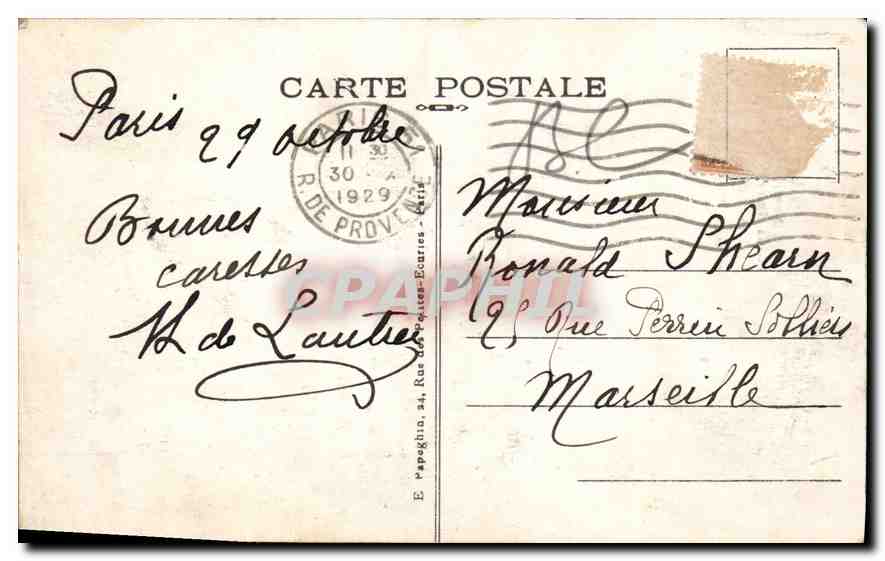 CARTE POSTALE
Paris
29 octobre
Bonnes
caresses
de Lautrec
11 30
30
1929
R. DE PROVENCE
E. Papeghin, 24, Rue des Petites-Ecuries - Paris
CPAPHIL
Monsieur
Ronald Shearn
25 Rue Perrin Solliers
Marseille